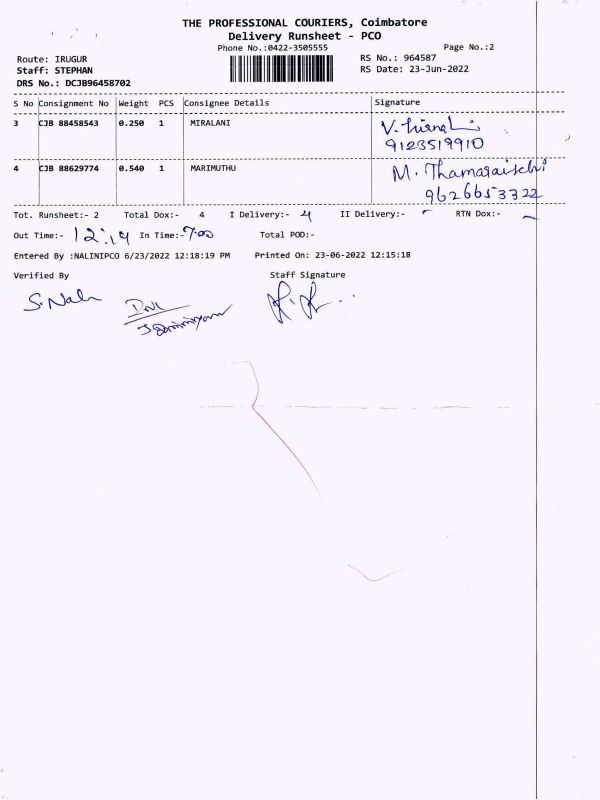 THE PROFESSIONAL COURIERS, Coimbatore
Delivery Runsheet - PCO
Phone No.:0422-3505555 Page No.:2
Route: IRUGUR RS No.: 964587
Staff: STEPHAN RS Date: 23-Jun-2022
DRS No.: DCJB96458702
S No Consignment No Weight PCS Consignee Details Signature
3 CJB 88458543 0.250 1 MIRALANI
9123519910
4 CJB 88629774 0.540 1 MARIMUTHU M. Thamaraiselvi
9626653322
Tot. Runsheet:- 2 Total Dox:- 4 I Delivery:- 4 II Delivery:- - RTN Dox:- -
Out Time:- 12:14 In Time:- 7:00 Total POD:-
Entered By :NALINIPCO 6/23/2022 12:18:19 PM Printed On: 23-06-2022 12:15:18
Verified By Staff Signature